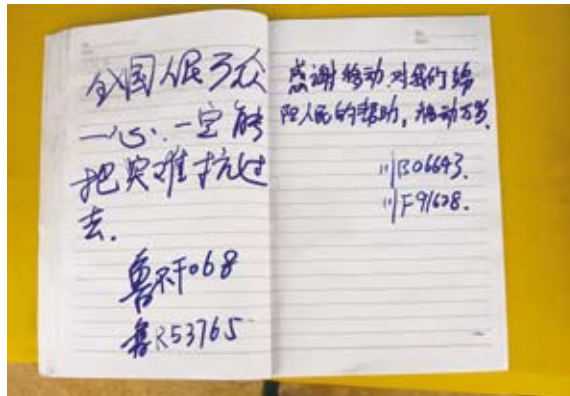 全国人民万众
一心.一定能
把灾难抗过
去.
鲁R53765
感谢移动对我们绵
阳人民的帮助，移动万岁.
川B06643.
川F91628.